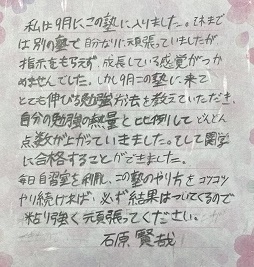 私は9月にこの塾に入りました。これまで
は別の塾で自分なりに頑張っていましたが
指示をもらえず、成長している感覚がつか
めませんでした。しかし9月この塾に来て
とても伸びる勉強方法を教えていただき、
自分の勉強の熱量とと比例してどんどん
点数が上がっていきました。そして関学
に合格することができました。
毎日自習室を利用し、この塾のやり方をコツコツ
やり続ければ、必ず結果はついてくるので
粘り強く頑張ってください。
石原賢哉